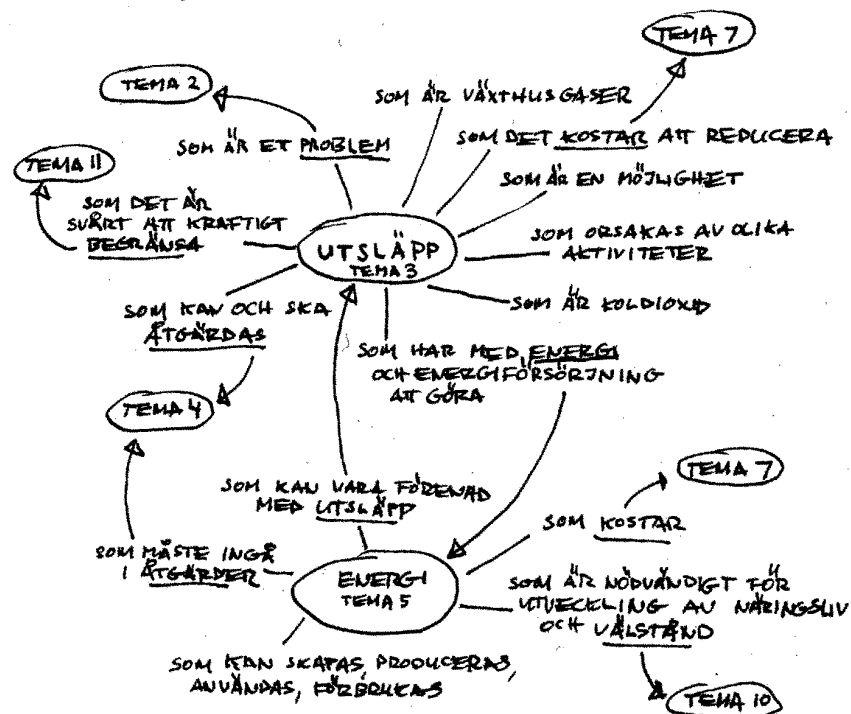 TEMA 7
TEMA 2
SOM ÄR VÄXTHUSGASER
SOM ÄR ET PROBLEM
SOM DET KOSTAR ATT REDUCERA
TEMA 11
SOM ÄR EN MÖJLIGHET
SOM DET ÄR
SVÅRT ATT KRAFTIGT
BEGRÄNSA
UTSLÄPP
TEMA 3
SOM ORSAKAS AV OLIKA
AKTIVITETER
SOM KAN OCH SKA
ÅTGÄRDAS
SOM ÄR KOLDIOXID
SOM HAR MED ENERGI
OCH ENERGIFÖRSÖRJNING
ATT GÖRA
TEMA 4
TEMA 7
SOM KAN VARA FÖRENAD
MED UTSLÄPP
SOM KOSTAR
SOM MÅSTE INGÅ
I ÅTGÄRDER
ENERGI
TEMA 5
SOM ÄR NÖDVÄNDIGT FÖR
UTVECKLING AV NÄRINGSLIV
OCH VÄLSTÅND
SOM KAN SKAPAS, PRODUCERAS,
ANVÄNDAS, FÖRBRUKAS
TEMA 10